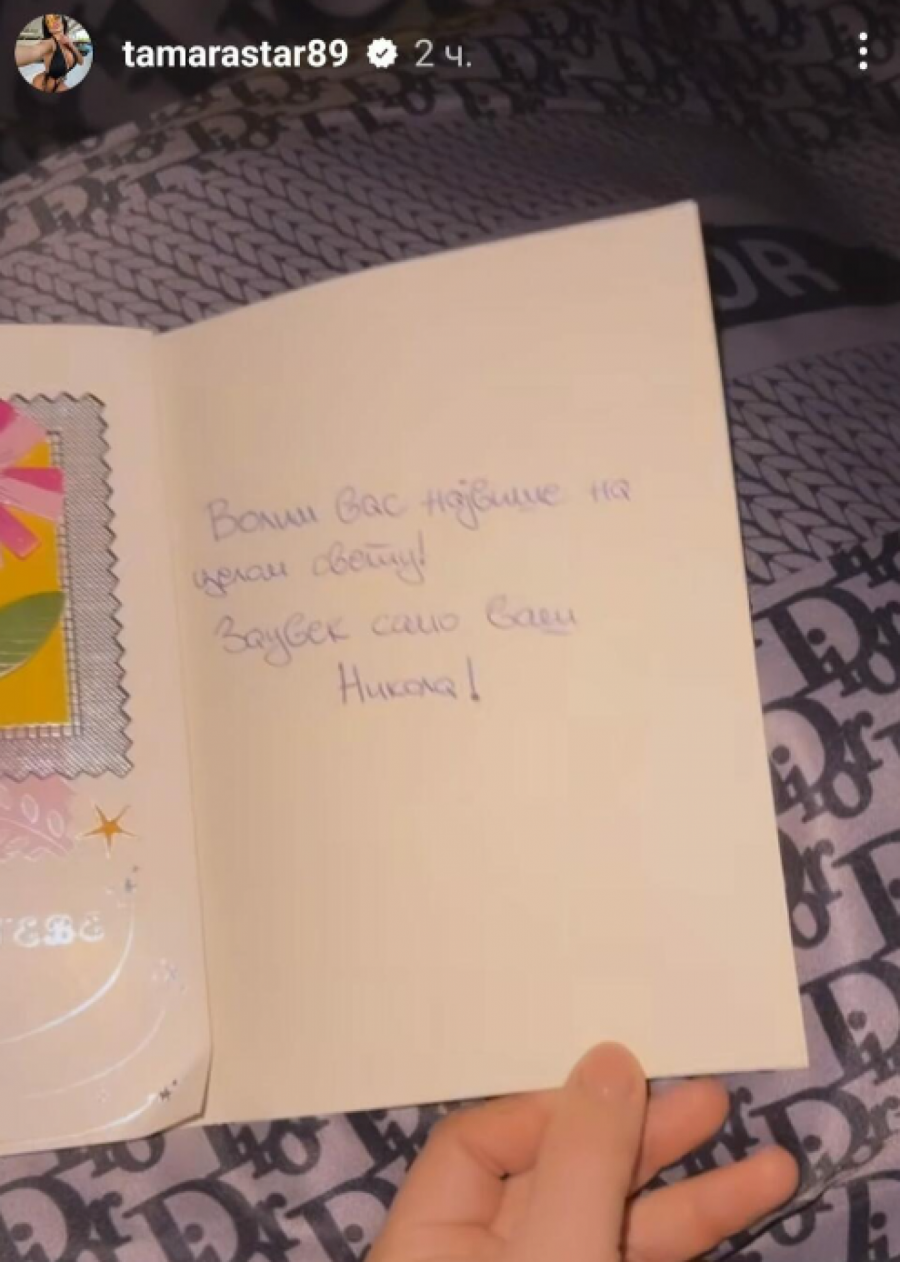 tamarastar89 2 ч.
Волим вас највише на
целом свету!
Заувек само ваш
Никола!
ТЕБЕ
DIOR